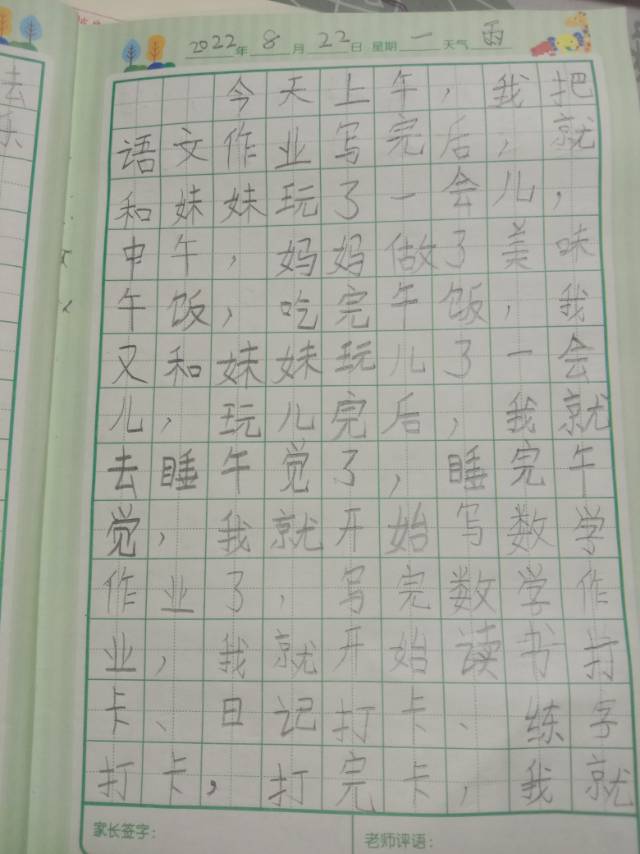 2022年8月22日 星期一 天气雨
今天上午，我把
语文作业写完后，就
和妹妹玩了一会儿，
中午，妈妈做了美味
午饭，吃完午饭，我
又和妹妹玩儿了一会
儿，玩儿完后，我就
去睡午觉了，睡完午
觉，我就开始写数学
作业了，写完数学作
业，我就开始读书打
卡、日记打卡、练字
打卡，打完卡，我就
家长签字：
老师评语：
去
乐